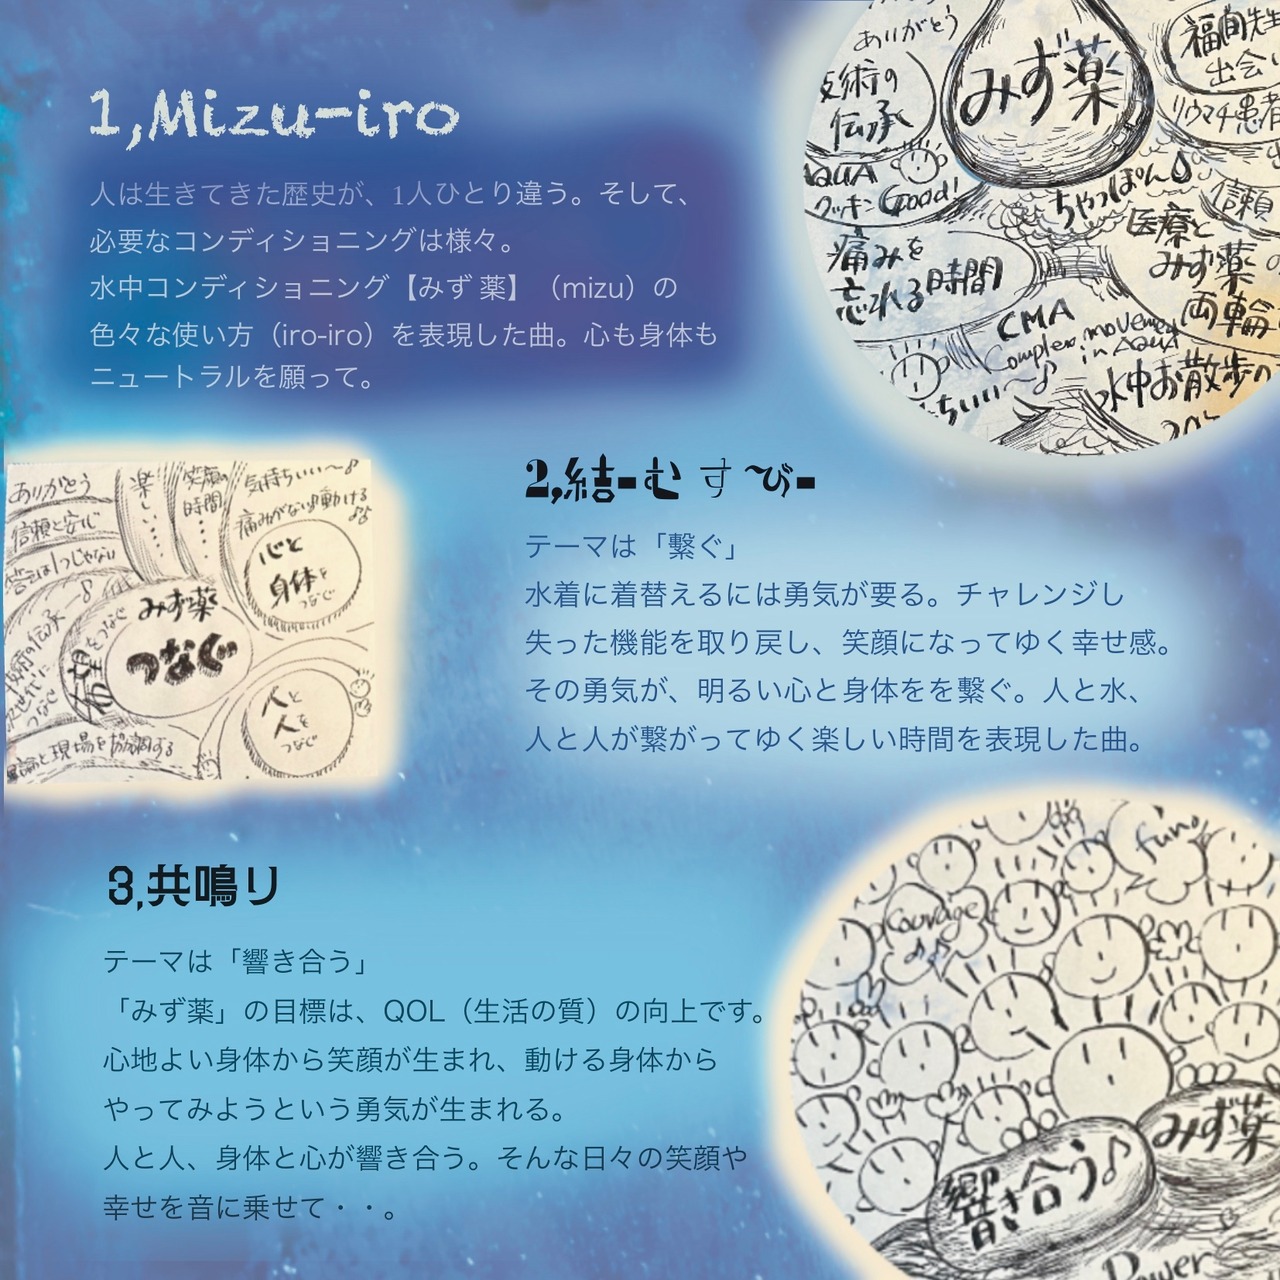 1,Mizu-iro
人は生きてきた歴史が、1人ひとり違う。そして、
必要なコンディショニングは様々。
水中コンディショニング【みず 薬】（mizu）の
色々な使い方（iro-iro）を表現した曲。心も身体も
ニュートラルを願って。
ありがとう
技術の
伝承
みず薬
福間先生
出会い
リウマチ患者
AQUA
クッキン Good!
ちゃっぽん
信頼
医療と
みず薬
両輪
痛みを
忘れる時間
CMA
Complex movement
in Aqua
水中お散歩
2,結ーむすびー
テーマは「繋ぐ」
水着に着替えるには勇気が要る。チャレンジし
失った機能を取り戻し、笑顔になってゆく幸せ感。
その勇気が、明るい心と身体をを繋ぐ。人と水、
人と人が繋がってゆく楽しい時間を表現した曲。
ありがとう
信頼と安心
答えは1つじゃない
楽しい・・・
笑顔の
時間・・・
気持ちいい〜♪
痛みがない♪動ける
心と
身体を
つなぐ
みず薬
つなぐ
希望をつなぐ
技術の伝承
次世代に
つなぐ
人と
人を
つなぐ
理論と現場を協調する
3,共鳴り
テーマは「響き合う」
「みず薬」の目標は、QOL（生活の質）の向上です。
心地よい身体から笑顔が生まれ、動ける身体から
やってみようという勇気が生まれる。
人と人、身体と心が響き合う。そんな日々の笑顔や
幸せを音に乗せて・・。
fun♪
Courage
♪♪
みず薬
響き合う♪
Power